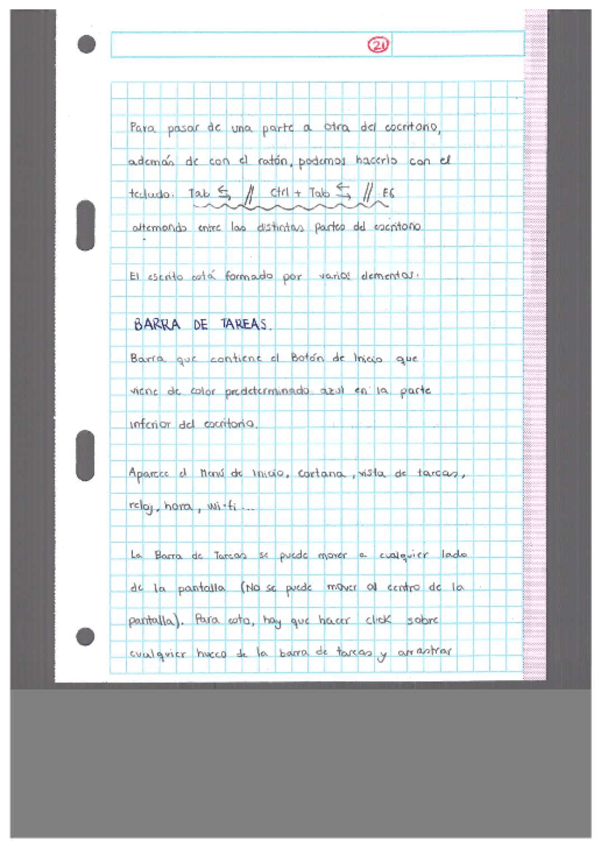 21
Para pasar de una parte a otra del escritorio,
además de con el ratón, podemos hacerlo con el
teclado: Tab ⇆ // Ctrl + Tab ⇆ // F6
alternando entre las distintas partes del escritorio
El escrito está formado por varios elementos.
BARRA DE TAREAS.
Barra que contiene el Botón de Inicio que
viene de color predeterminado azul en la parte
inferior del escritorio.
Aparece el Menú de Inicio, Cortana, vista de tareas,
reloj, hora, wi-fi...
La Barra de Tareas se puede mover a cualquier lado
de la pantalla (No se puede mover al centro de la
pantalla). Para esto, hay que hacer click sobre
cualquier hueco de la barra de tareas y arrastrar